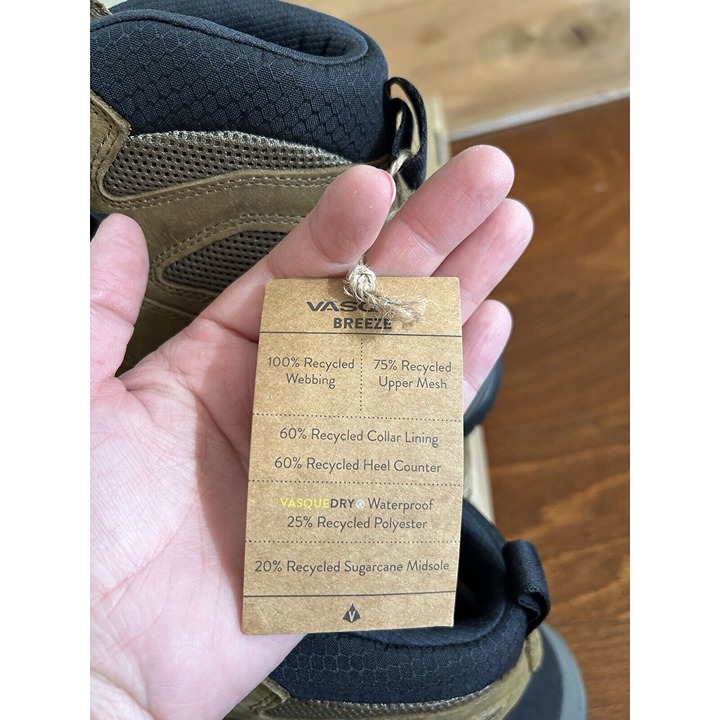 BREEZE
100% Recycled
Webbing
75% Recycled
Upper Mesh
60% Recycled Collar Lining
60% Recycled Heel Counter
VASQUEDRY Waterproof
25% Recycled Polyester
20% Recycled Sugarcane Midsole
V